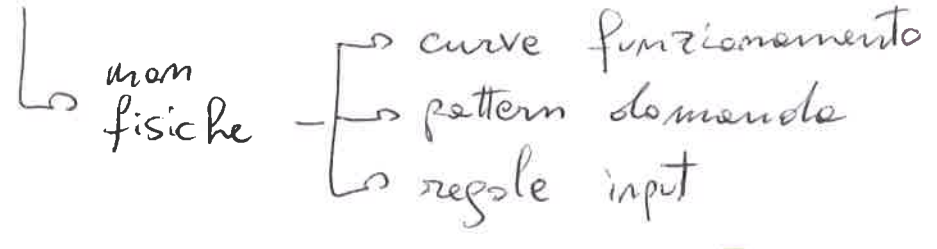 non
fisiche
curve funzionamento
pattern domanda
regole input